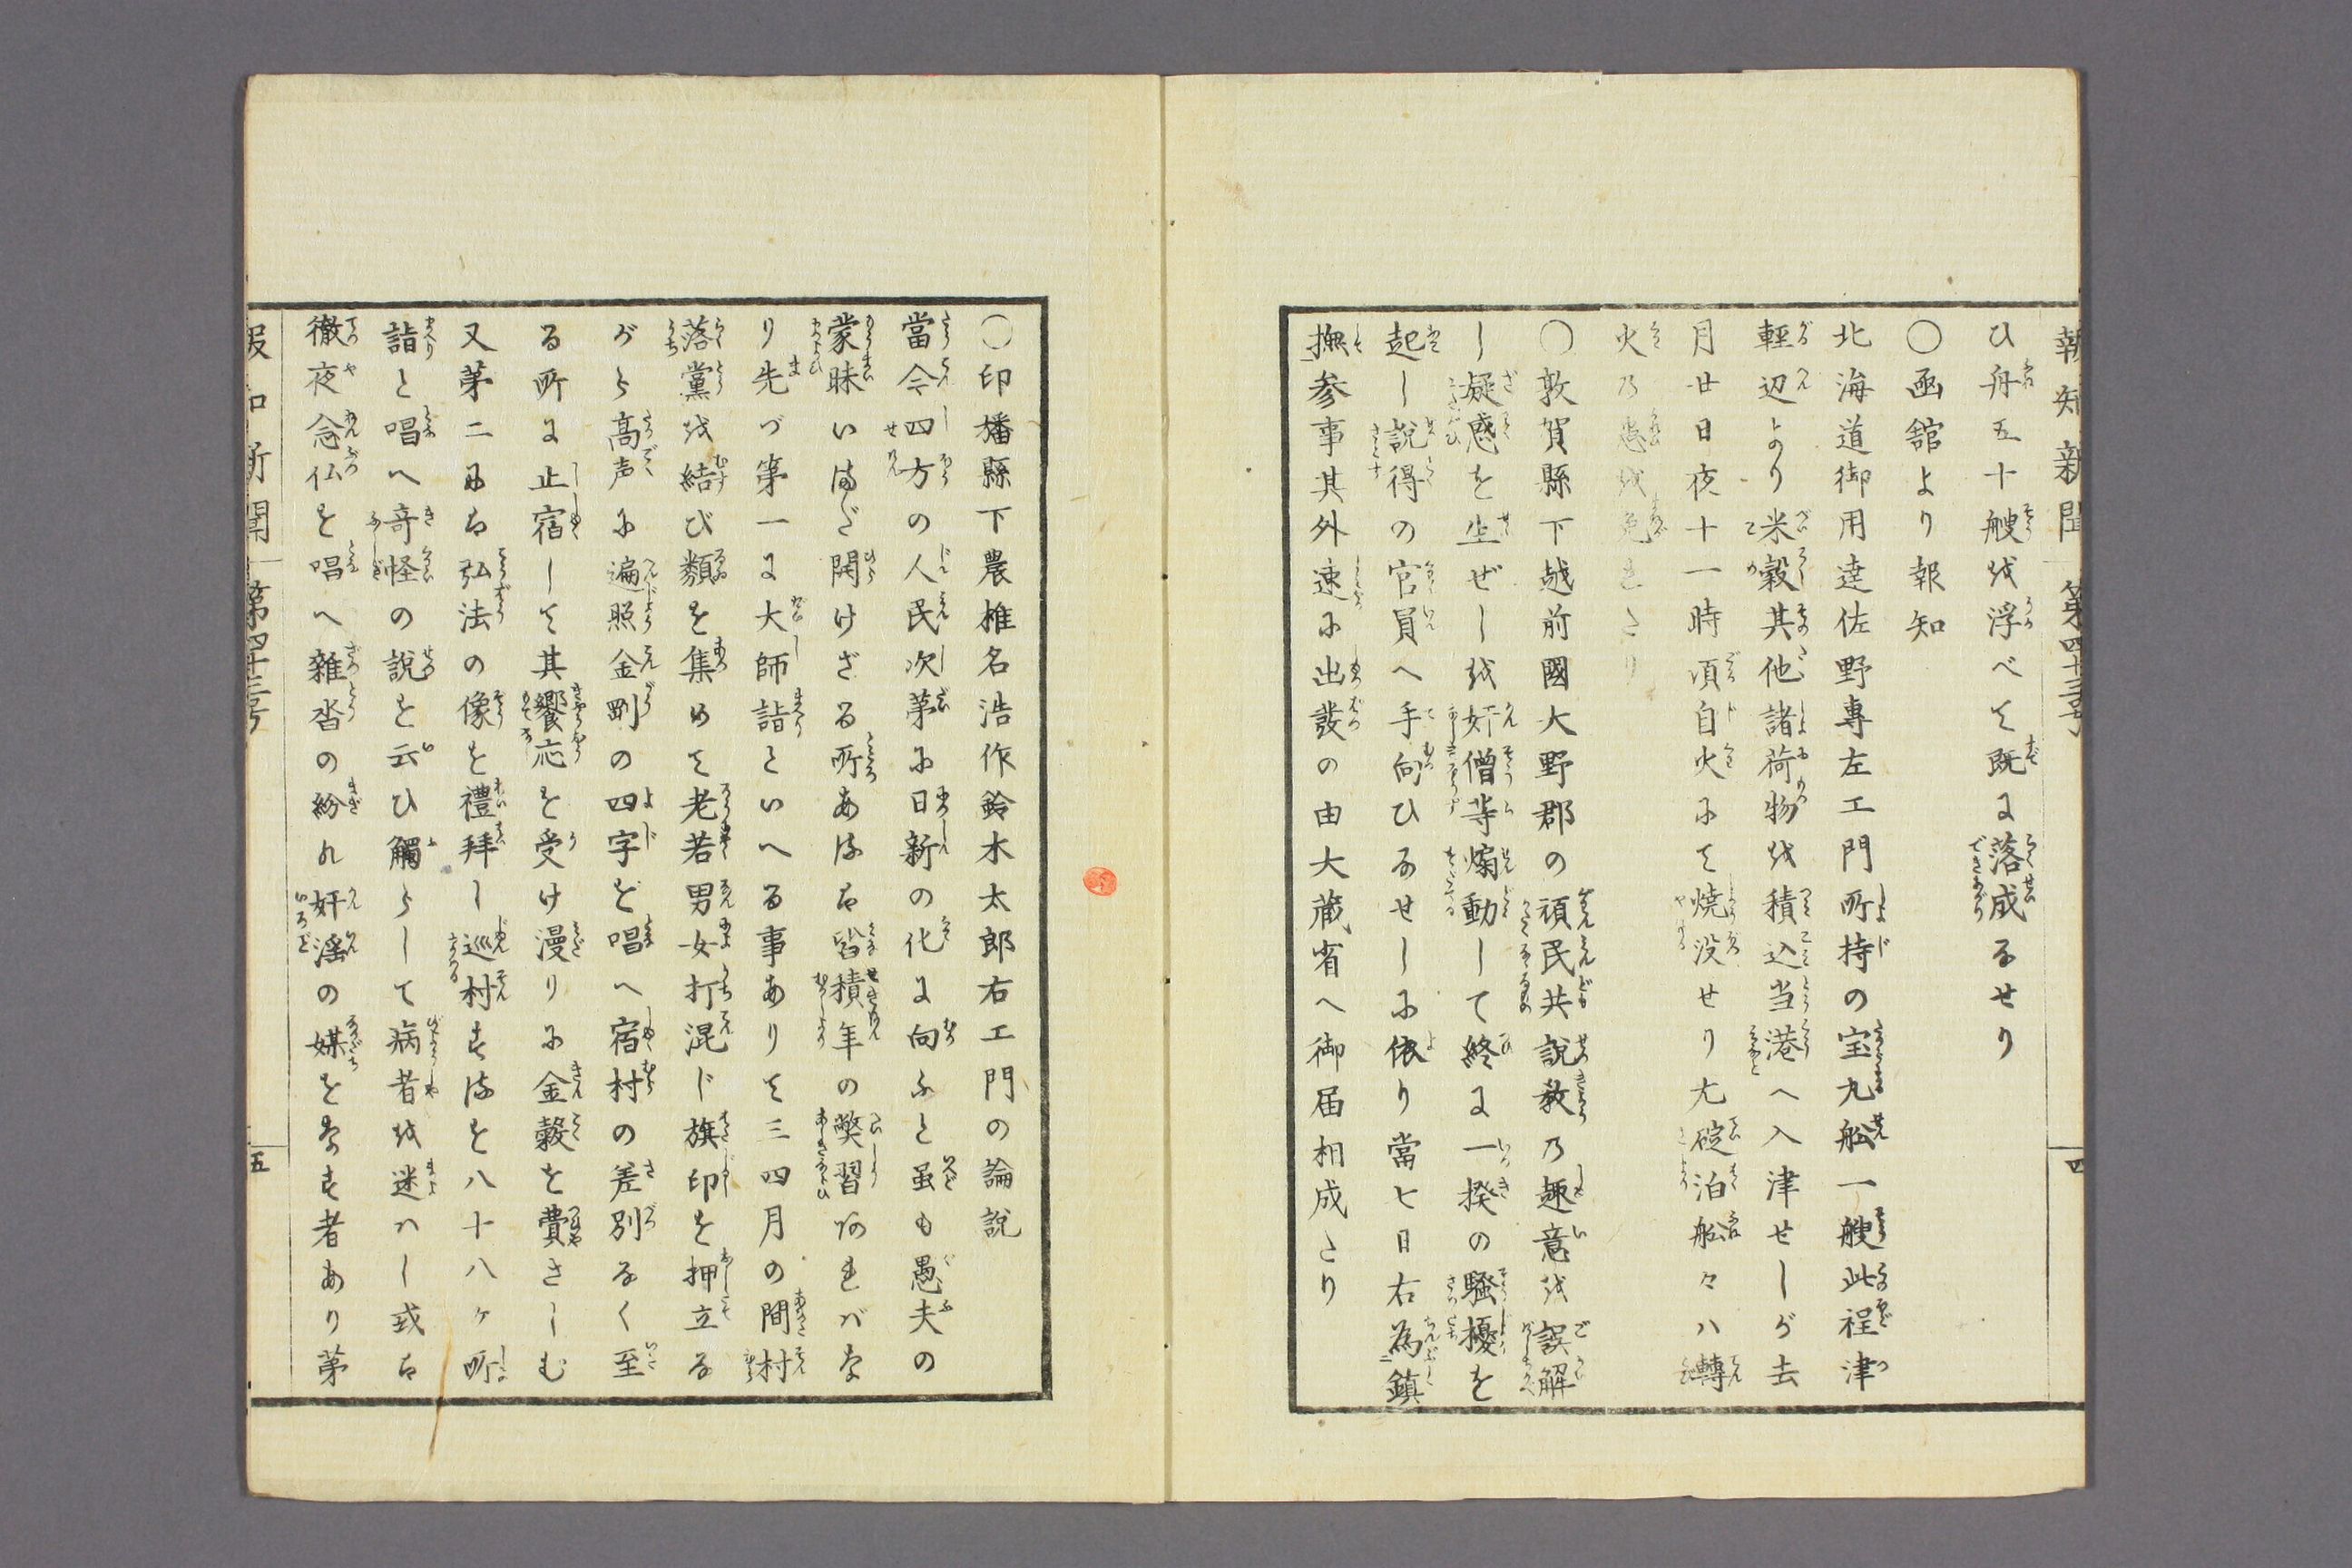 報知新聞 第四十三号 四
ひ舟五十艘を浮べて既に落成なせり
〇函館より報知
北海道御用達佐野専左エ門所持の宝九船一艘此程津
軽辺より米穀其他諸荷物を積込当港へ入津せしが去
月廿日夜十一時頃自火にて焼没せり尤碇泊船々ハ轉
火乃患を免れたり
〇敦賀縣下越前國大野郡の頑民共説教乃趣意を誤解
し疑惑を生ぜしを奸僧等煽動して終に一揆の騒擾を
起し説得の官員へ手向ひなせしに依り當七日右為鎮
撫参事其外速に出発の由大蔵省へ御届相成たり
〇印旛縣下農椎名浩作鈴木太郎右エ門の論説
當今四方の人民次第に日新の化に向ふと虽も愚夫の
蒙昧いまだ開けざる所あるは皆積年の弊習なればな
り先づ第一に大師詣といへる事ありて三四月の間村
落黨を結び類を集めて老若男女打混じ旗印を押立な
がら高声に遍照金剛の四字を唱へ宿村の差別なく至
る所に止宿して其饗応を受け漫りに金穀を費さしむ
又第二には弘法の像を禮拜し巡村するを八十八ヶ所
詣と唱へ奇怪の説を云ひ觸らして病者を迷ハし或は
徹夜念仏を唱へ雑沓の紛れ奸淫の媒をなす者あり第
報知新聞 第四十三号 五